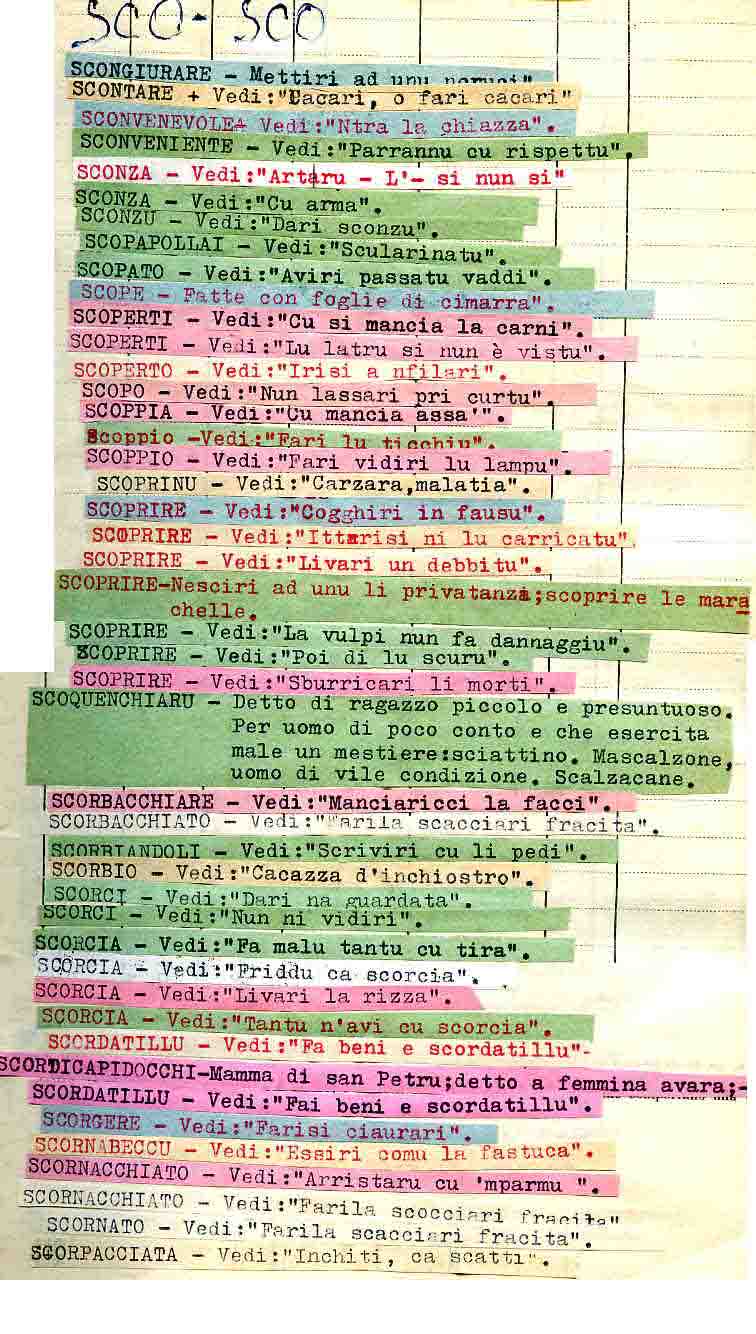 SCO - SCO
SCONGIURARE - Mettiri ad unu
SCONTARE + Vedi:"Cacari, o fari cacari"
SCONVENEVOLE+ Vedi:"Ntra la chiazza".
SCONVENIENTE - Vedi:"Parrannu cu rispettu".
SCONZA - Vedi:"Artaru - L'- si nun si"
SCONZA - Vedi:"Cu arma".
SCONZU - Vedi:"Dari sconzu".
SCOPAPOLLAI - Vedi:"Scularinatu".
SCOPATO - Vedi:"Aviri passatu vaddi".
SCOPE - Fatte con foglie di cimarra".
SCOPERTI - Vedi:"Cu si mancia la carni".
SCOPERTI - Vedi:"Lu latru si nun è vistu".
SCOPERTO - Vedi:"Irisi a nfilari".
SCOPO - Vedi:"Nun lassari pri curtu".
SCOPPIA - Vedi:"Cu mancia assa'".
Scoppio -Vedi:"Fari lu ticchiu".
SCOPPIO - Vedi:"Fari vidiri lu lampu".
SCOPRINU - Vedi:"Carzara,malatia".
SCOPRIRE - Vedi:"Cogghiri in fausu".
SCOPRIRE - Vedi:"Ittarisi ni lu carricatu".
SCOPRIRE - Vedi:"Livari un debbitu".
SCOPRIRE-Nesciri ad unu li privatanzi;scoprire le mara
chelle.
SCOPRIRE - Vedi:"La vulpi nun fa dannaggiu".
SCOPRIRE - Vedi:"Poi di lu scuru".
SCOPRIRE - Vedi:"Sburricari li morti".
SCOQUENCHIARU - Detto di ragazzo piccolo e presuntuoso.
Per uomo di poco conto e che esercita
male un mestiere:sciattino. Mascalzone,
uomo di vile condizione. Scalzacane.
SCORBACCHIARE - Vedi:"Manciaricci la facci".
SCORBACCHIATO - Vedi:"Farila scacciari fracita".
SCORBIANDOLI - Vedi:"Scriviri cu li pedi".
SCORBIO - Vedi:"Cacazza d'inchiostro".
SCORCI - Vedi:"Dari na guardata".
SCORCI - Vedi:"Nun ni vidiri".
SCORCIA - Vedi:"Fa malu tantu cu tira".
SCORCIA - Vedi:"Friddu ca scorcia".
SCORCIA - Vedi:"Livari la rizza".
SCORCIA - Vedi:"Tantu n'avi cu scorcia".
SCORDATILLU - Vedi:"Fa beni e scordatillu"-
SCORDICAPIDOCCHI-Mamma di san Petru;detto a femmina avara;-
SCORDATILLU - Vedi:"Fai beni e scordatillu".
SCORGERE - Vedi:"Farisi ciaurari".
SCORNABECCU - Vedi:"Essiri comu la fastuca".
SCORNACCHIATO - Vedi:"Arristaru cu 'mparmu ".
SCORNACCHIATO - Vedi:"Farila scocciari fracita"
SCORNATO - Vedi:"Farila scacciari fracita".
SCORPACCIATA - Vedi:"Inchiti, ca scatti".